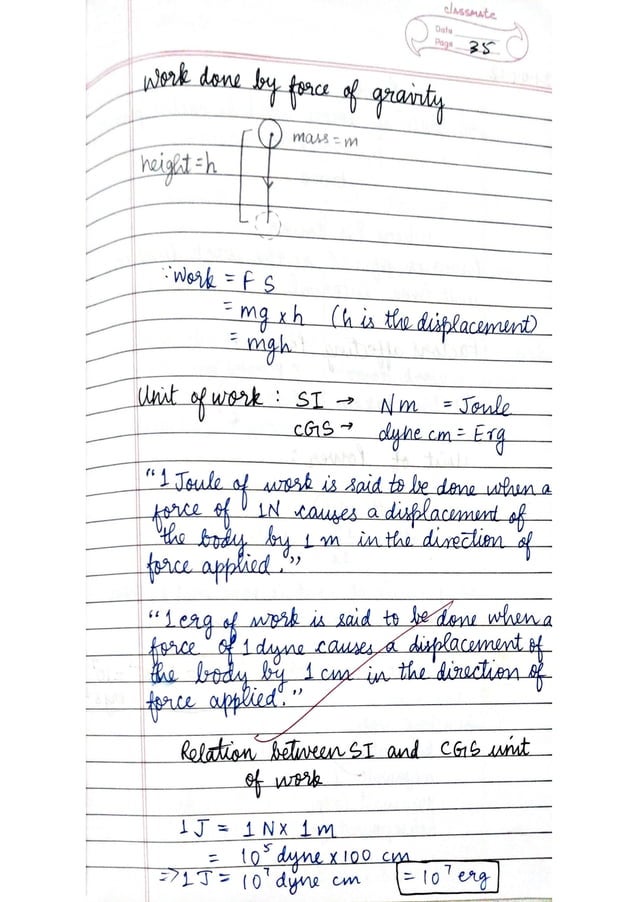 classmate
Date
Page 35
Work done by force of gravity
mass = m
height = h
∵ Work = F S
= mg x h (h is the displacement)
= mgh
Unit of work : SI → Nm = Joule
CGS → dyne cm = Erg
"1 Joule of work is said to be done when a
force of 1N causes a displacement of
the body by 1 m in the direction of
force applied."
"1 erg of work is said to be done when a
force of 1 dyne causes a displacement of
the body by 1 cm in the direction of
force applied."
Relation between SI and CGS unit
of work
1 J = 1 N x 1 m
= 10⁵ dyne x 100 cm
⇒ 1 J = 10⁷ dyne cm = 10⁷ erg